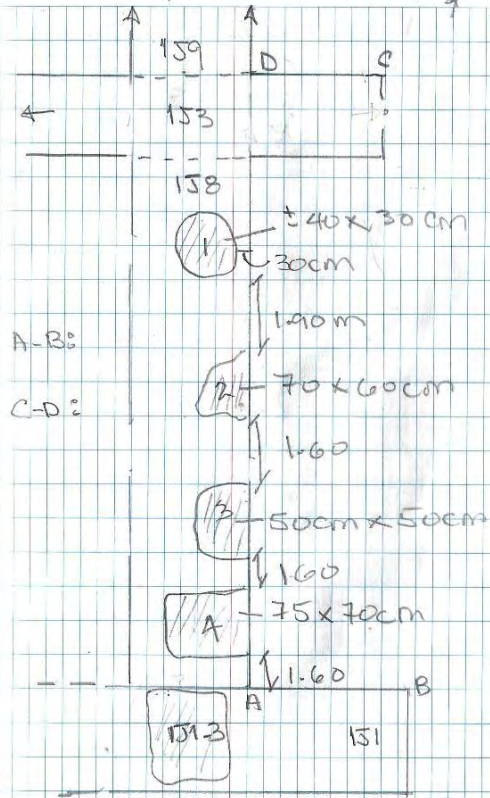 1J9
D C
1J3
1J8
1
±40 x 30 cm
30cm
1.90 m
A-B:
2
70 x 60cm
C-D:
1.60
3
50cm x 50cm
1.60
4
75 x 70cm
1.60
A B
1J1-3
1J1